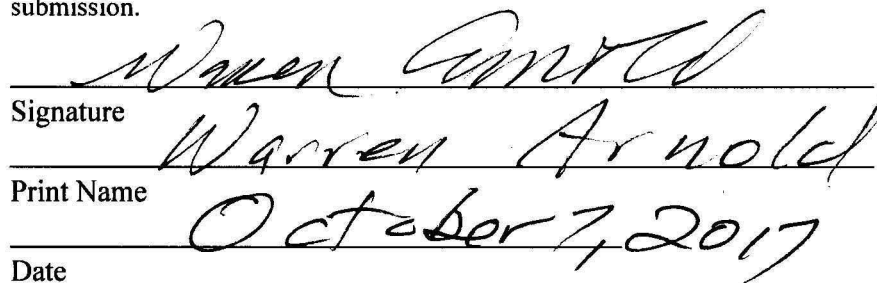 submission.
Warren Arnold
Signature
Warren Arnold
Print Name
October 7, 2017
Date